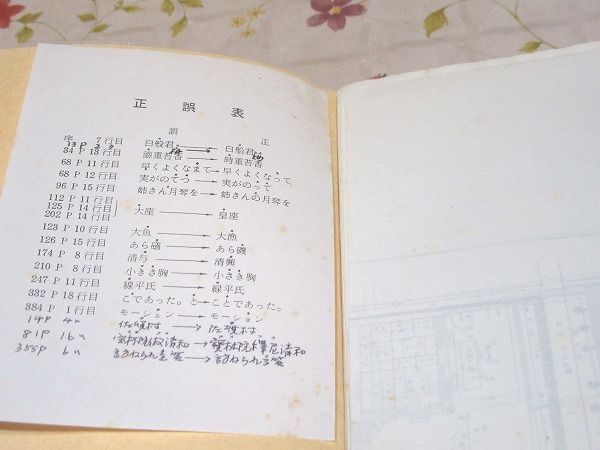 正誤表
誤 正
序 7行目 白般君 → 白船君
34 P 13行目 徳重苔香 → 時重苔香
68 P 11行目 早くよくなまて → 早くよくなって
68 P 12行目 実がのてつ → 実がのって
96 P 15行目 姉さん月琴を → 姉さんの月琴を
112 P 11行目
125 P 14行目 大座 → 皇座
202 P 14行目
123 P 10行目 大魚 → 大漁
126 P 15行目 あら磯 → あら磯
174 P 8行目 清与 → 清興
210 P 8行目 小さき胸 → 小さき胸
247 P 11行目 線平氏 → 緑平氏
332 P 18行目 こであった。と → ことであった。
384 P 1行目 モーシェン → モーション
19P 4〃 佐 村 → 佐 村
81P 16〃 清和 → 寶林院 清和
355P 6〃 訪ねられ → 訪ねられ